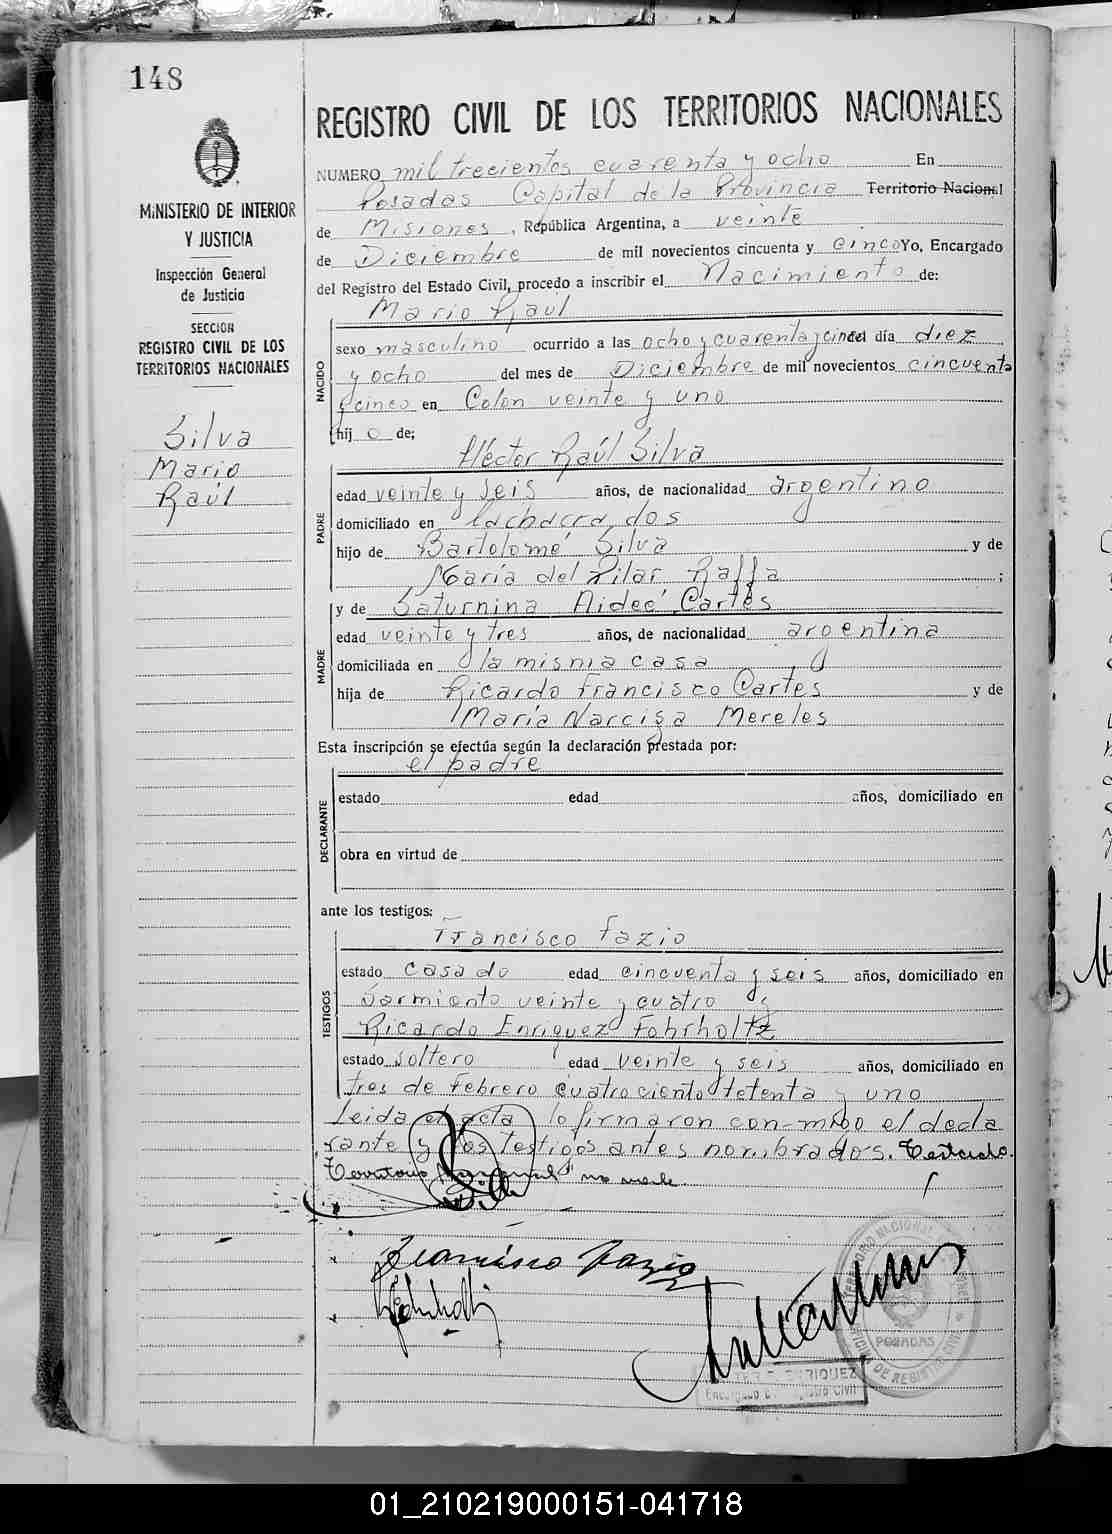 148
MINISTERIO DE INTERIOR
Y JUSTICIA
Inspección General
de Justicia
SECCION
REGISTRO CIVIL DE LOS
TERRITORIOS NACIONALES
Silva
Mario
Raúl
REGISTRO CIVIL DE LOS TERRITORIOS NACIONALES
NUMERO mil trecientos cuarenta y ocho En
Posadas Capital de la Provincia Territorio Nacional
de Misiones, República Argentina, a veinte
de Diciembre de mil novecientos cincuenta y cinco Yo, Encargado
del Registro del Estado Civil, procedo a inscribir el Nacimiento de:
Mario Raúl
NACIDO
sexo masculino ocurrido a las ocho y cuarenta y cinco del día diez
y ocho del mes de Diciembre de mil novecientos cincuenta
y cinco en Colon veinte y uno
hij o de;
Héctor Raúl Silva
PADRE
edad veinte y seis años, de nacionalidad argentino
domiciliado en la chacra dos
hijo de Bartolomé Silva y de
María del Pilar Raffa ;
y de Saturnina Aideé Cartes
MADRE
edad veinte y tres años, de nacionalidad argentina
domiciliada en la misma casa
hija de Ricardo Francisco Cartes y de
María Narcisa Mereles
Esta inscripción se efectúa según la declaración prestada por:
el padre
DECLARANTE
estado edad años, domiciliado en
obra en virtud de
ante los testigos:
Francisco Fazio
TESTIGOS
estado casado edad cincuenta y seis años, domiciliado en
Sarmiento veinte y cuatro y
Ricardo Enriquez Fohrholtz
estado soltero edad veinte y seis años, domiciliado en
tres de Febrero cuatrociento setenta y uno
Leida el acta lo firmaron con-migo el decla
rante y los testigos antes nombrados. Testado:
Territorio Nacional no vale
Francisco Fazio
POSADAS
01_210219000151-041718